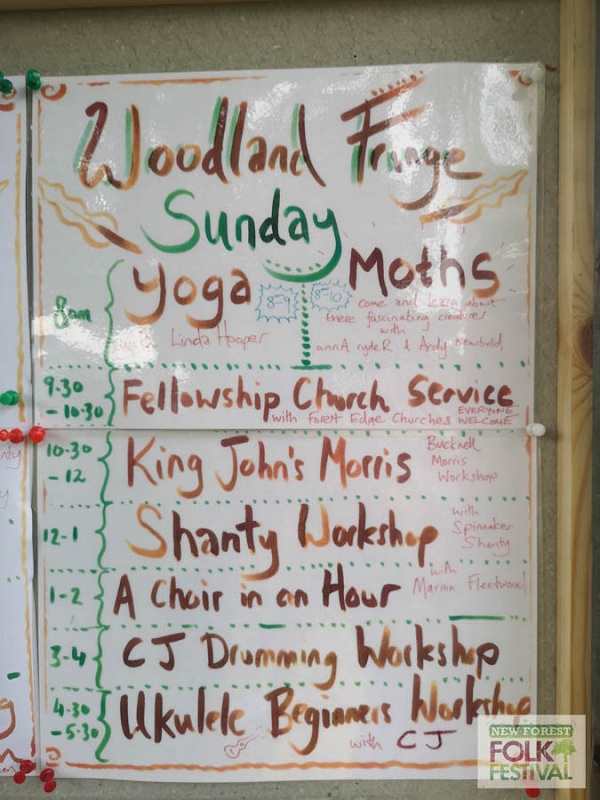 Woodland Fringe
Sunday
8am
Yoga
8-9
with Linda Hooper
Moths
8-10
come and learn about
these fascinating creatures
with
annA rydeR & Andy Newbold
9.30
- 10.30
Fellowship Church Service
with Forest Edge Churches EVERYONE WELCOME
10.30
- 12
King John's Morris
Bucknell
Morris
Workshop
12-1
Shanty Workshop
with
Spinnaker
Shanty
1-2
A Choir in an Hour
with
Marina Fleetwood
3-4
CJ Drumming Workshop
4.30
- 5.30
Ukulele Beginners Workshop
with CJ
NEW FOREST
FOLK
FESTIVAL